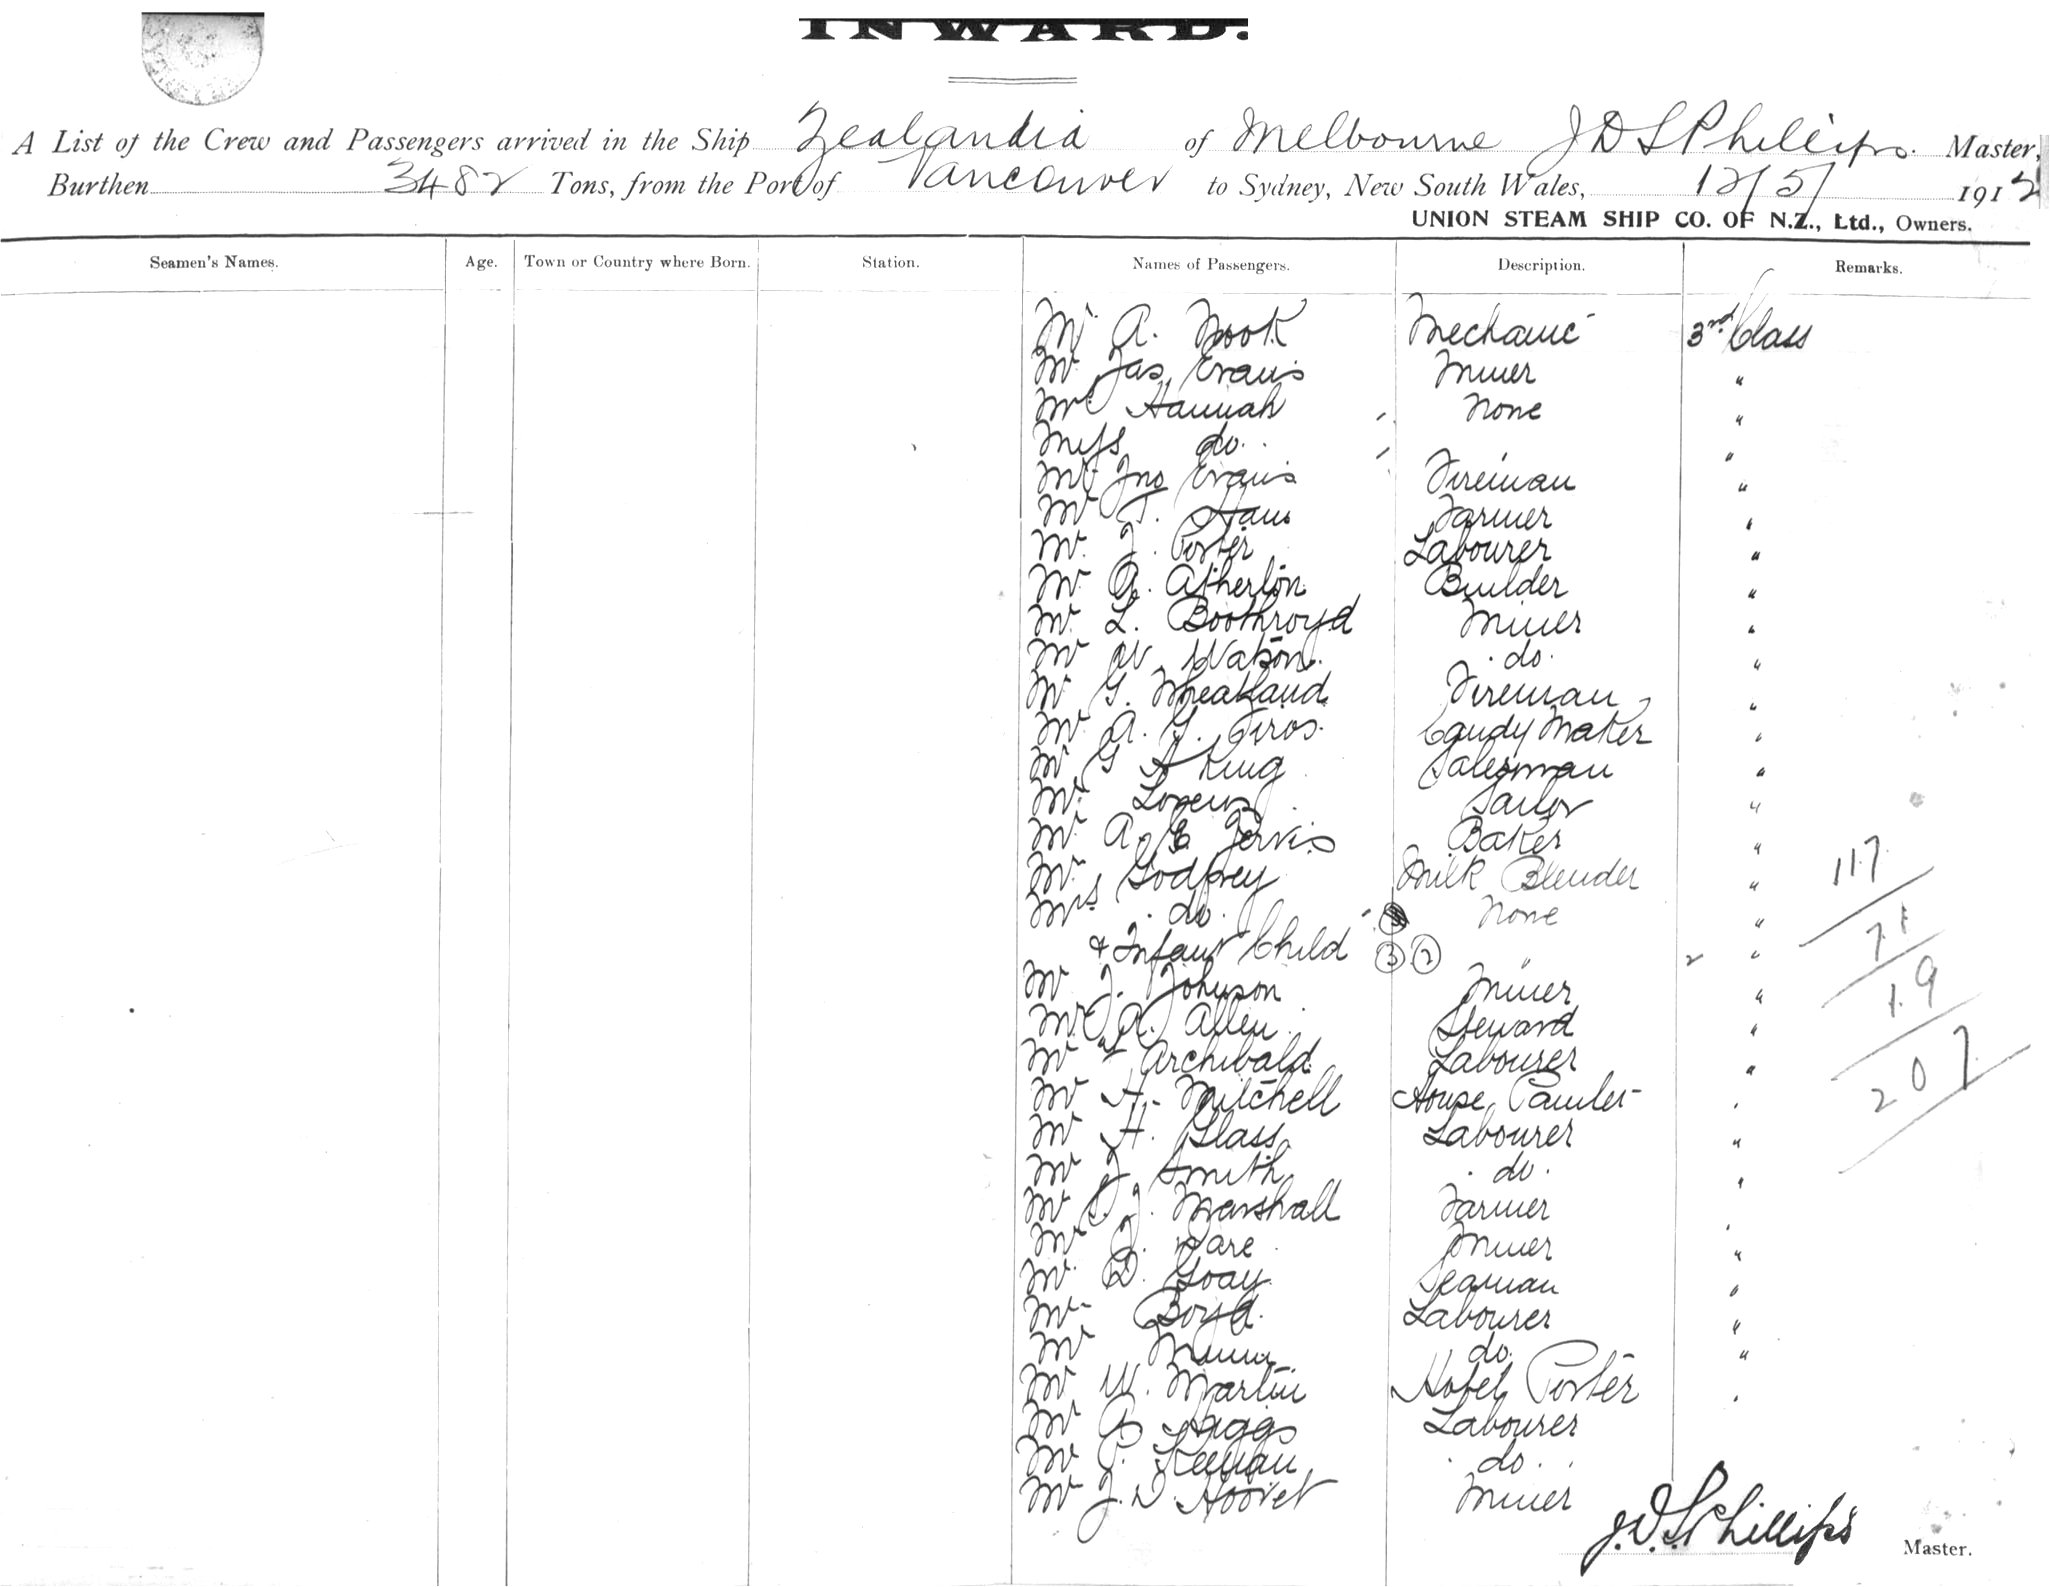 INWARD.
A List of the Crew and Passengers arrived in the Ship Zealandia of Melbourne J D S Phillips. Master,
Burthen 3482 Tons, from the Port of Vancouver to Sydney, New South Wales, 12/5/ 1912
UNION STEAM SHIP CO. OF N.Z., Ltd., Owners.
Seamen's Names. Age. Town or Country where Born. Station. Names of Passengers. Description. Remarks.
Mr. A. Mechanic 3rd Class
Mr Jas Evans Miner "
Mr Hannah None "
Miss do. "
Mr Jno Evans Fireman "
Mr T. Farmer "
Mr. J. Porter Labourer "
Mr. A. Atherton Builder "
Mr. L. Boothroyd Miner "
Mr W Watson. do. "
Mr G. Wheatland Fireman "
Mr A. G. Candy Maker "
Mr G A King Salesman "
Mr. Tailor "
Mr. A. E. Jervis Baker "
Mr. Godfrey Milk Blender "
Mrs do. None "
& Infant Child 3 2 " 2 "
Mr J. Johnson Miner "
Mr. A. Allen Steward "
Mr Archibald Labourer "
Mr H. Mitchell House Painter "
Mr H. Glass Labourer "
Mr J Smith do. "
Mr J. Marshall Farmer "
Mr J. Miner "
Mr. D. Seaman "
Mr. Boyd. Labourer "
Mr do. "
Mr W. Martin Hotel Porter "
Mr Higgs Labourer
Mr P. Keenan do.
Mr J. D. Miner
117
71
19
207
J. D. S. Phillips Master.